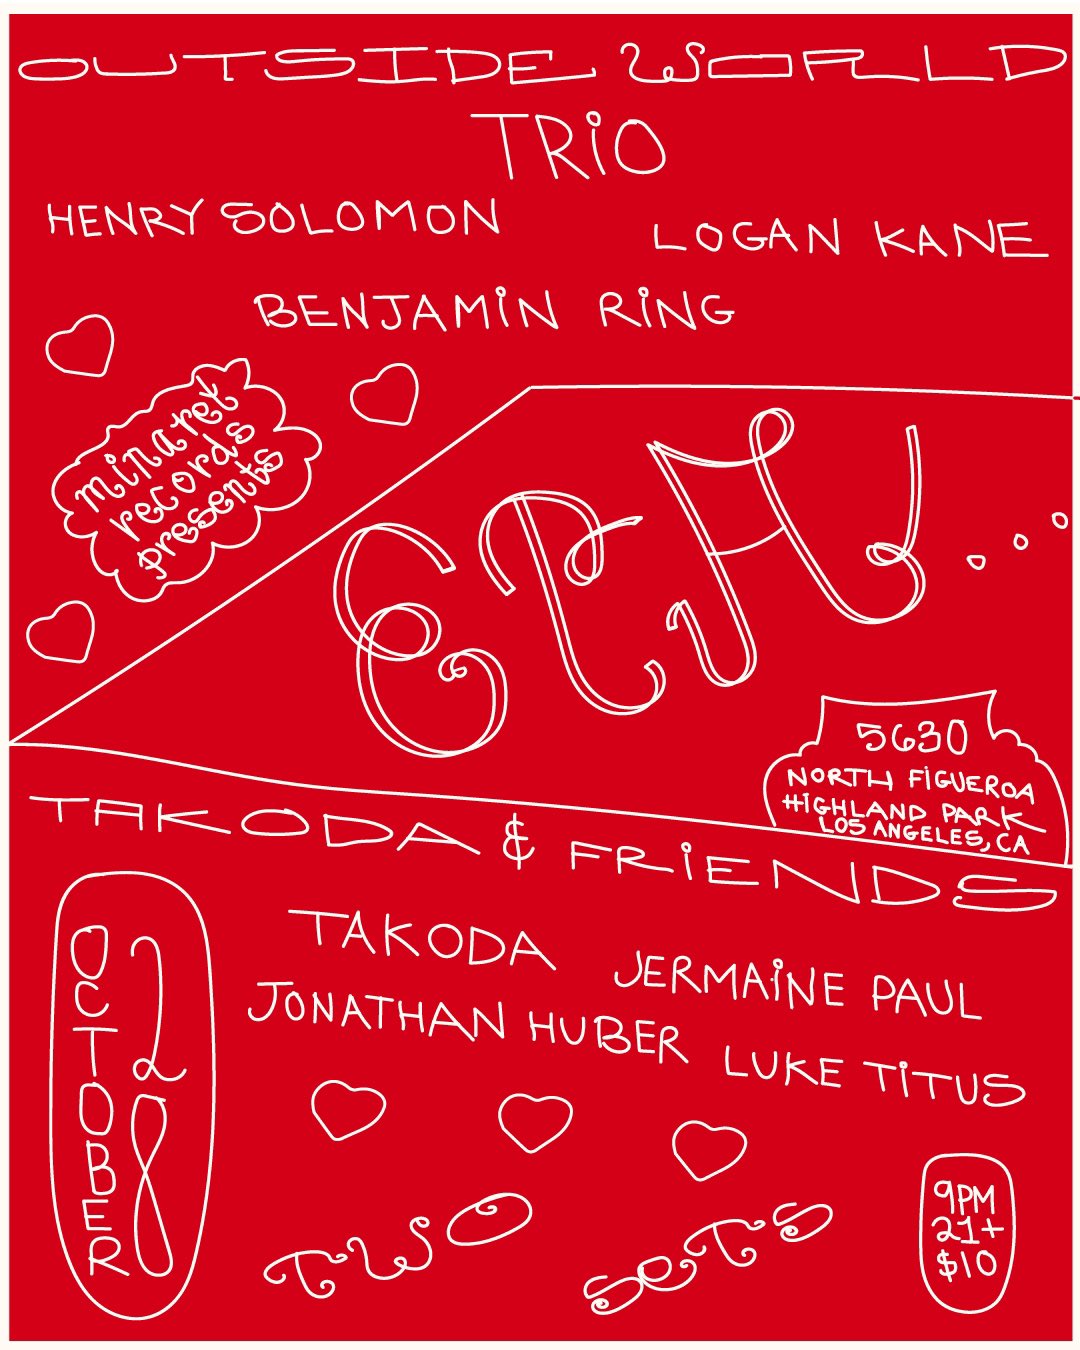 OUTSIDE WORLD
TRiO
HENRY SOLOMON
LOGAN KANE
BENJAMiN RiNG
minaret
records
presents
ETA...
5630
NORTH FiGUEROA
HiGHLAND PARK
LOS ANGELES, CA
TAKODA & FRiENDS
OCTOBER
28
TAKODA
JERMAiNE PAUL
JONATHAN HUBER
LUKE TiTUS
TWO SETS
9PM
21+
$10